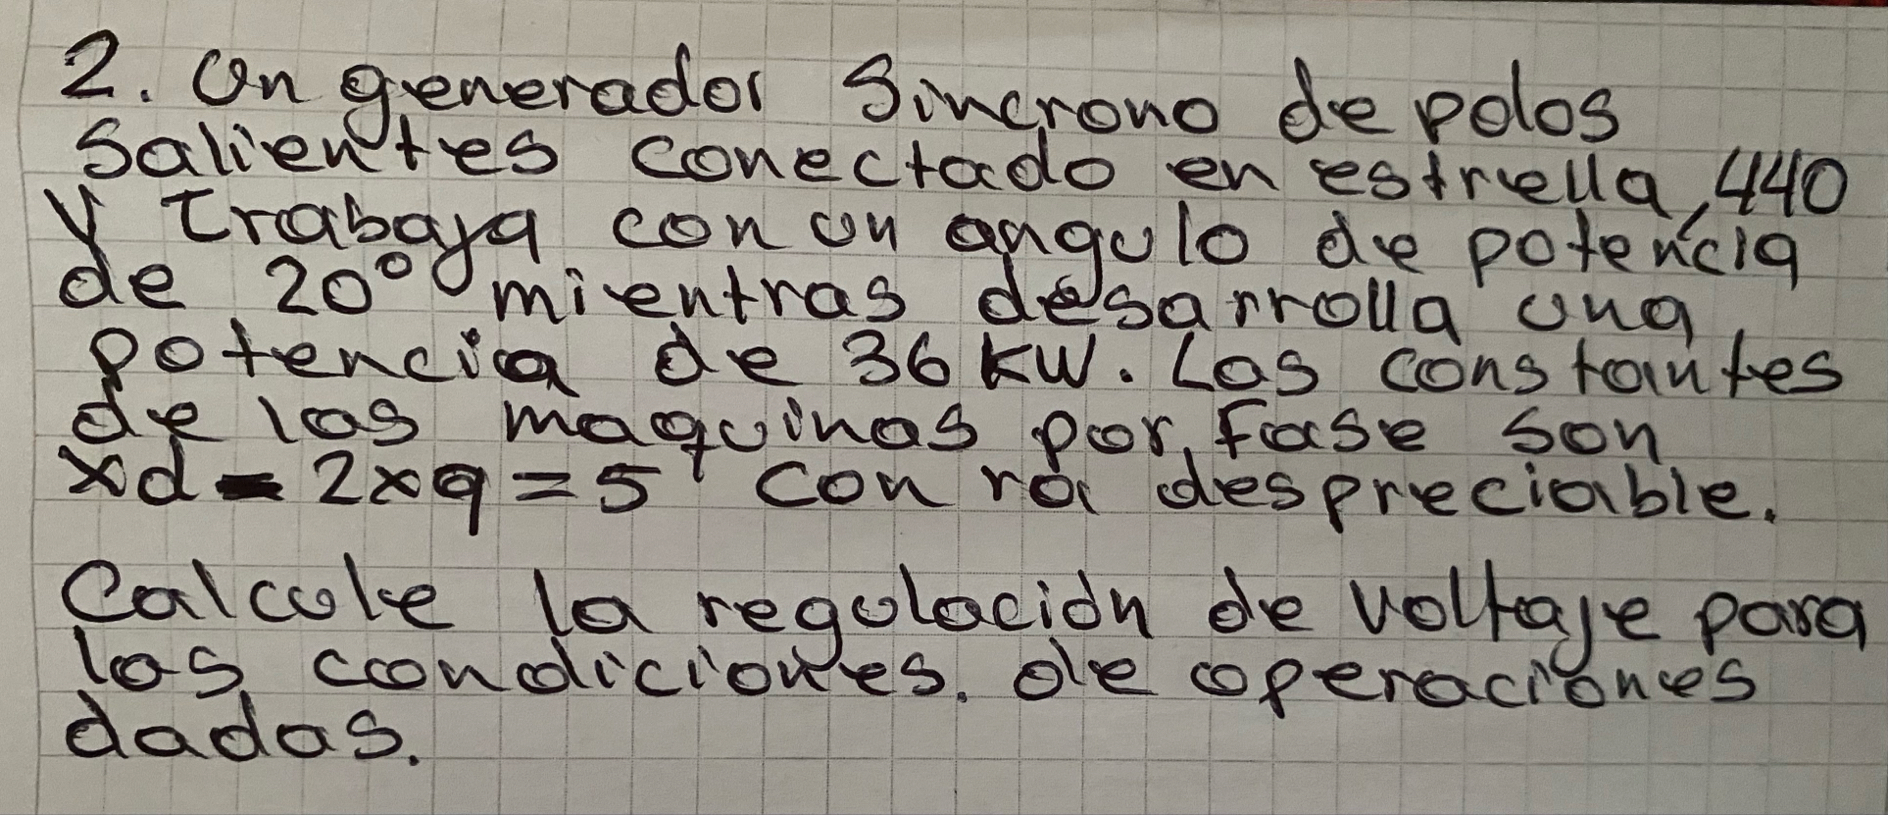 2. Un generador Sincrono de polos
Salientes conectado en estrella, 440
V Trabaja con un angulo de potencia
de 20° mientras desarrolla una
potencia de 36 KW. Las constantes
de las maquinas por fase son
xd = 2xq = 5 con ra despreciable.
Calcule la regulación de voltaje para
las condiciones. de operaciones
dadas.